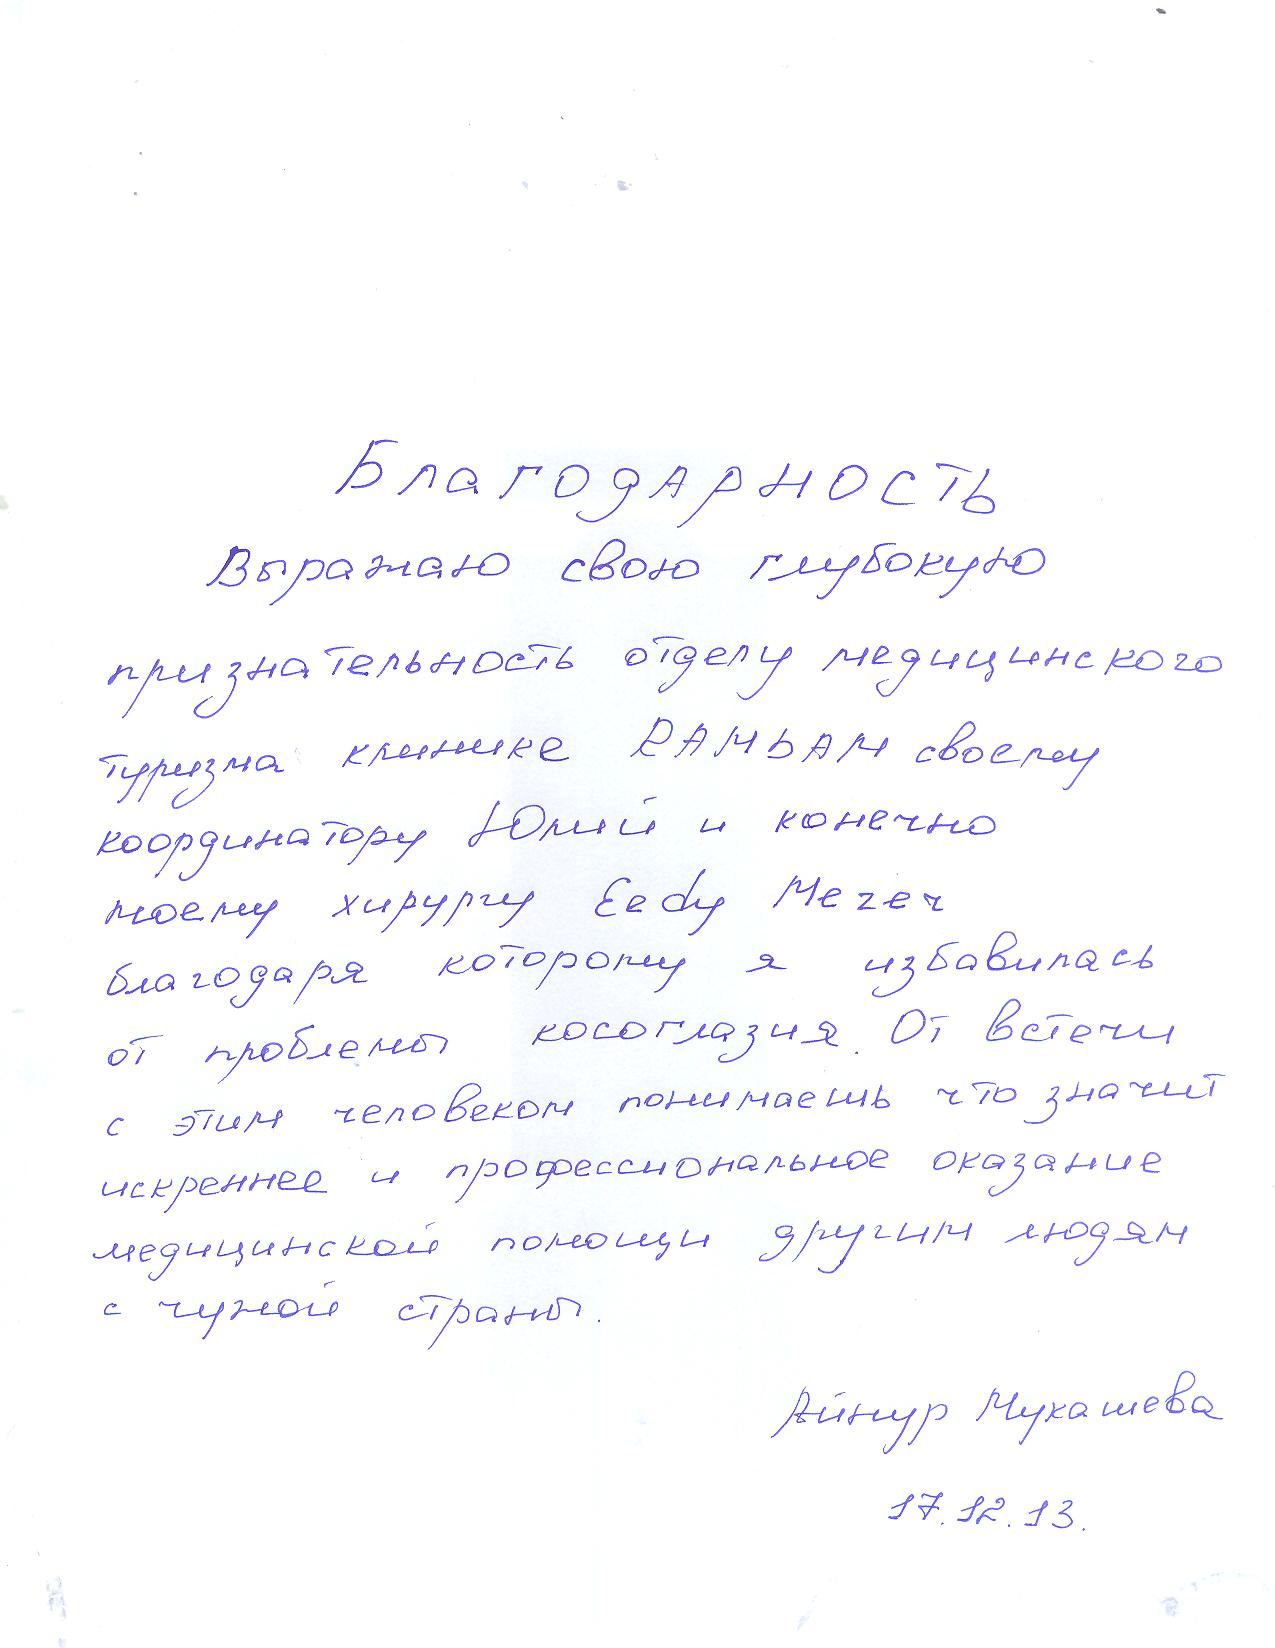 Благодарность
Выражаю свою глубокую
признательность отделу медицинского
туризма клинике RAMBAM своему
координатору Юлий и конечно
моему хирургу Eedy Мегеч
благодаря которому я избавилась
от проблемы косоглазия. От встечи
с этим человеком понимаешь что значит
искреннее и профессиональное оказание
медицинской помощи другим людям
с чужой страны.
Айнур Мукашева
17.12.13.